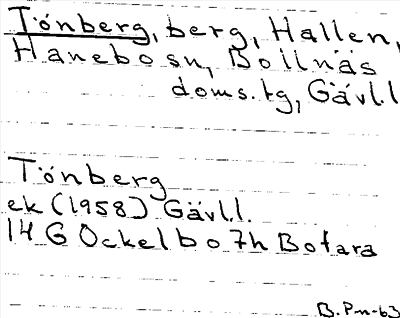 Tönberg, berg, Hallen,
Hanebo sn, Bollnäs
doms.tg, Gävl.l
Tönberg
ek (1958) Gävl.l.
14 G Ockelbo 7h Botara
B.Pm-63